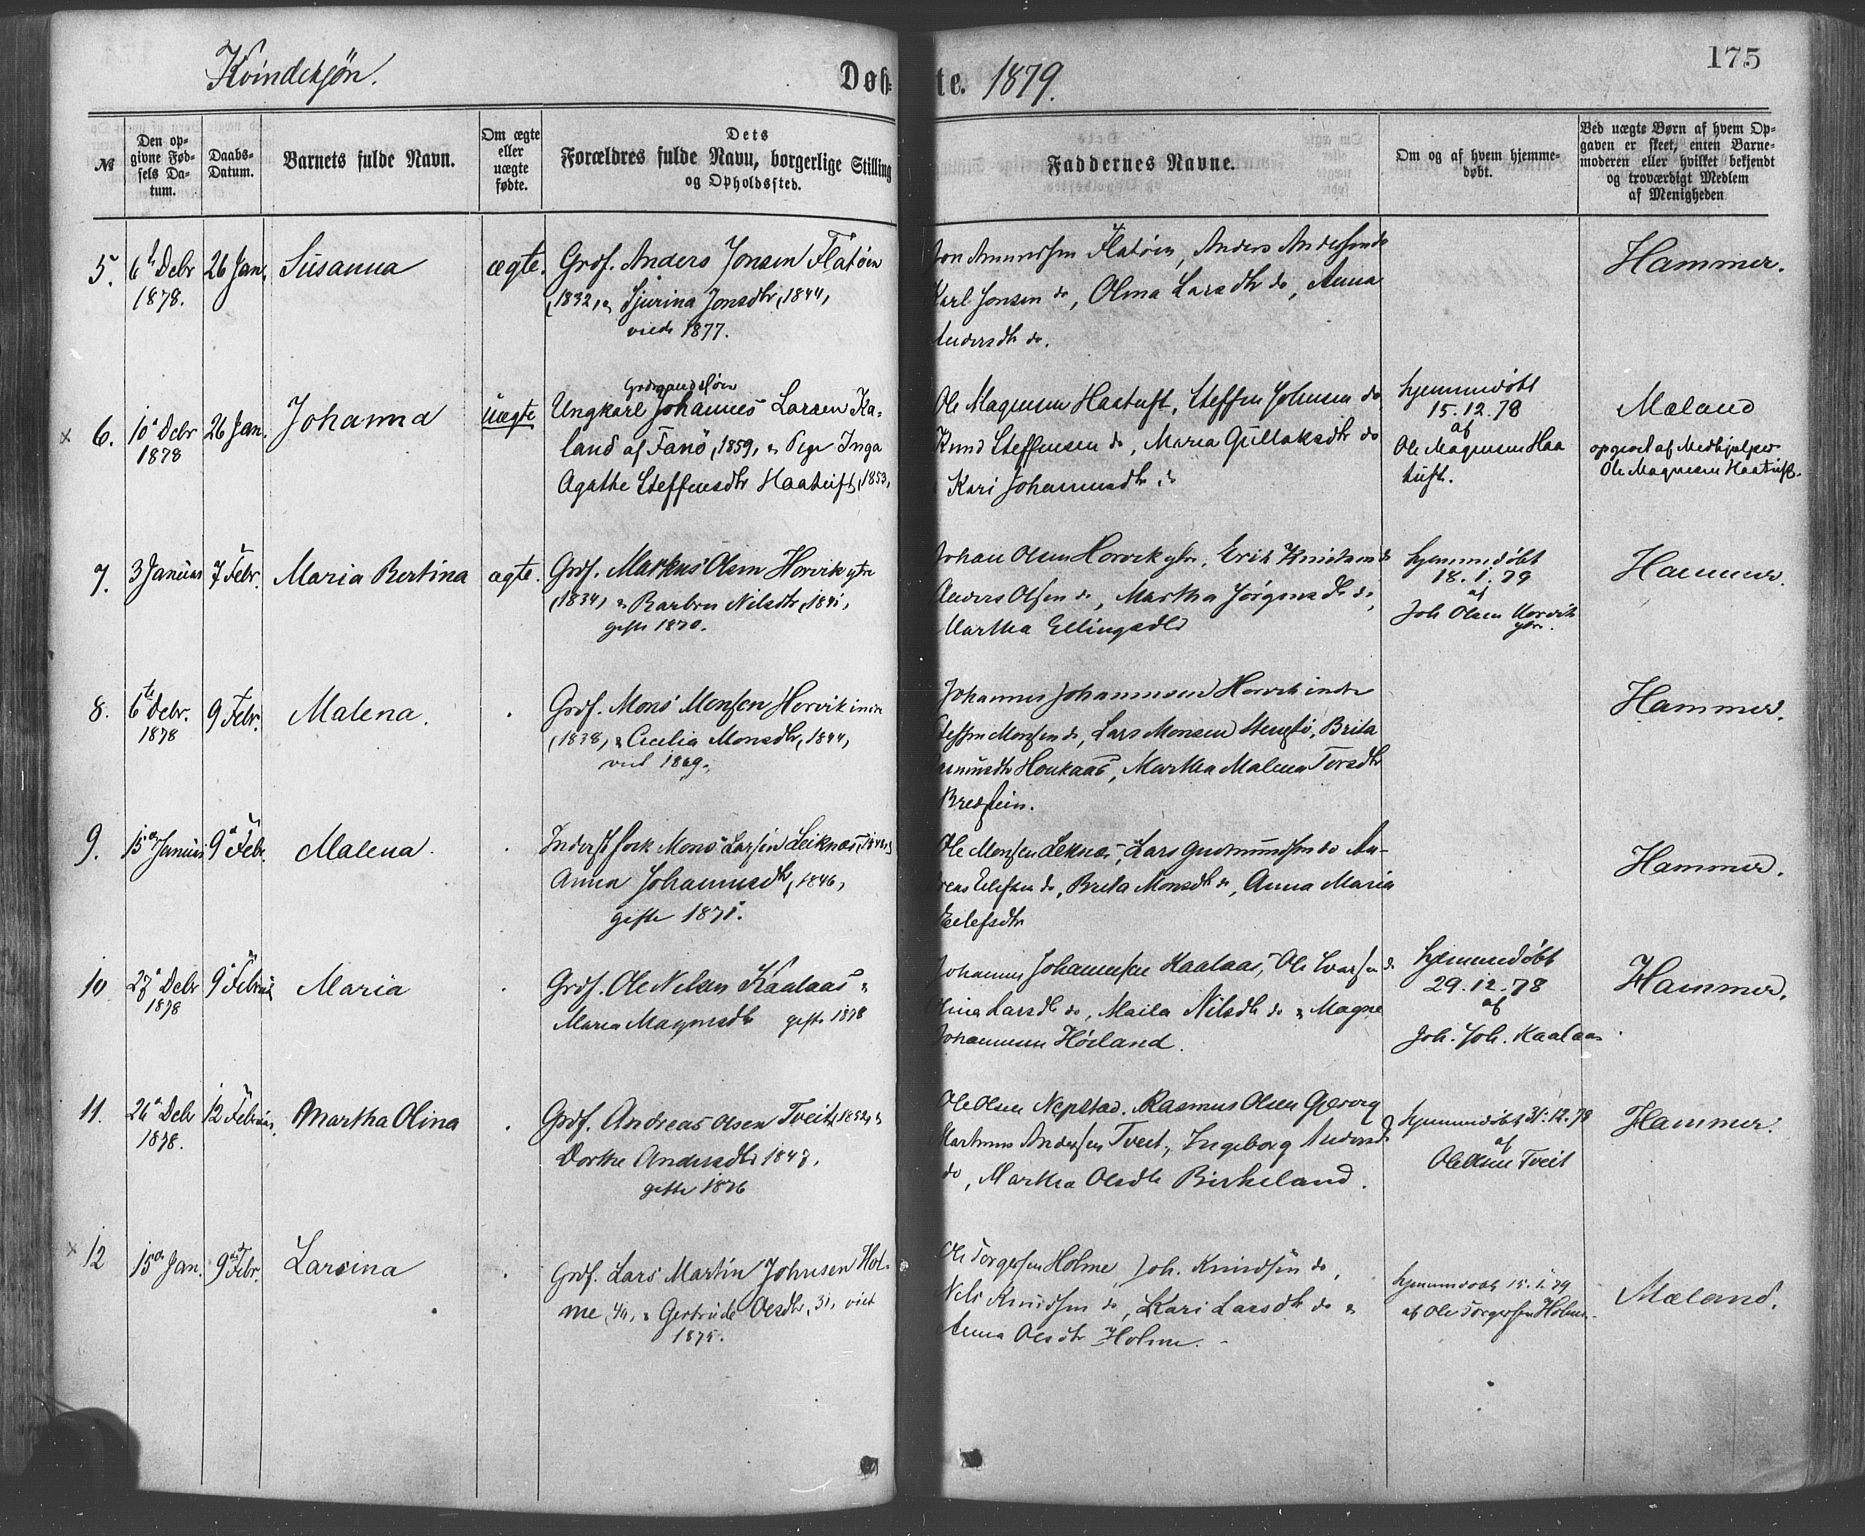 Kvindekjøn.
Døb-
te. 1879.
175
№
Den op-
givne Fød-
sels Da-
tum.
Daabs-
Datum.
Barnets fulde Navn.
Om ægte
eller
uægte
fødte.
Dets
Forældres fulde Navn, borgerlige Stilling
og Opholdsted.
Faddernes Navne.
Om og af hvem hjemme-
døbt.
Ved uægte Børn af hvem Op-
gaven er skeet, enten Barne-
moderen eller hvilket bekjendt
og troværdigt Medlem
af Menigheden
5. 6 Debr 26 Jan. Susanna ægte. Grdf. Anders Jonsen Flatøen
1878. (1832, & Sjurina Jonsdtr, 1844,
viede 1877.
Jon Amundsen Flatøen, Anders Andersen do
Karl Jonsen do, Olina Larsdtr do, Anna
Andersdtr do.
Hammer.
6. 10 Debr 26 Jan. Johanna uægte
1878
Ungkarl Johannes Larsen Ka-
land af Fanø, 1859, & Pige Inga
Agathe Steffensdtr Haatuft, 1853,
Ole Magnesen Haatuft, Steffen Johnsen do,
Knud Steffensen do, Maria Gullaksdtr do
Kari Johannesdtr do
hjemmedøbt
15.12.78
af
Ole Magnesen Haa
tuft.
Mæland
opgivet af Medhjælper
Ole Magnesen Haatuft.
7. 3 Januar 7 Febr. Maria Bertina ægte. Grdf. Markus Olsen Horvik ytre
(1834, & Barbro Nilsdtr, 1841,
gifte 1870.
Johan Olsen Horvik ytre, Erik Knudsen do
Anders Olsen do, Martha Jørgensdtr do,
Martha Ellingsdtr
hjemmedøbt
18.1.79
af
Joh Olsen Horvik
ytre.
Hammer.
8. 6te Debr. 9 Febr. Malena.
1878
Grdf. Mons Monsen Horvik indre
(1838, & Cecilia Monsdtr, 1844,
viet 1869.
Johannes Johannesen Horvik indre
Steffen Monsen do, Lars Monsen, Brita
Houkaas, Martha Malena Torsdtr
Bredstein.
Hammer.
9. 15 Januar 9 Febr. Malena.
Inderst Mons Larsen Leiknæs
Anna Johannesdtr, 1846,
gifte 1871.
Ole Monsen Leknæs, Lars Gudmundsen do An-
dreas Eilefsen do, Brita Monsdtr do, Anna Maria
Eilefsdtr
Hammer.
10 27 Debr 9 Februar Maria
1878
Grdf. Ole Nilsen Kaalaas &
Maria Magnesdtr gifte 1878
Johannes Johannesen Kaalaas, Ole Ivarsen do
Olina Larsdtr do, Maila Nilsdtr do & Magne
Johannesen Høiland.
hjemmedøbt
29.12.78
af
Joh. Joh. Kaalaas
Hammer.
11. 26 Debr 12 Februar. Martha Olina
1878.
Grdf. Andreas Olsen Tveit, 1852, &
Dorthe Andersdtr 1847,
gifte 1876
Ole Olsen Nepstad, Rasmus Olsen
Martinus Andersen Tveit, Ingeborg Andersdtr
do, Martha Olsdtr Birkeland.
hjemmedøbt 31.12.78
af
Ole Olsen Tveit
Hammer.
12 15 Jan. 9 Febr. Larsina
Grdf. Lars Martin Johnsen Hol-
me, 40, & Gertrude Olsdtr, 31, viet
1875.
Ole Torgersen Holme, Joh. Knudsen do,
Nels Knudsen do, Kari Larsdtr do &
Anna Olsdtr Holme.
hjemmedøbt 15.1.79
af Ole Torgersen Holme.
Mæland.